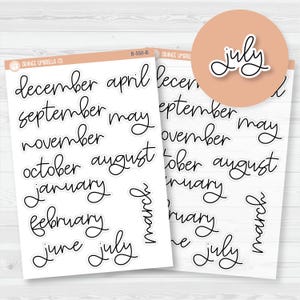 july
ORANGE UMBRELLA CO
december april
september
may
november
october august
january
february
june july
march
april
september
may
november
october august
january
february
july
march